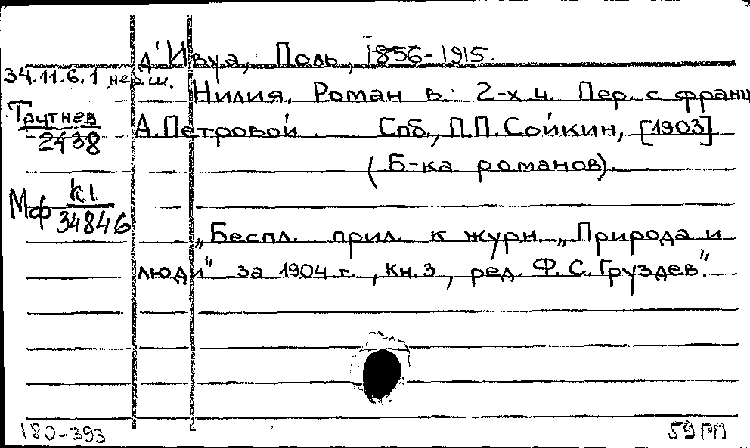 д'Ивуа, Поль, 1856-1915.
34.11.6.1 нер.ш.
Нилия. Роман в 2-х ч. Пер. с франц
Трутнев
2438
А.Петровой Спб., П.П.Сойкин, [1903]
(Б-ка романов).
Мф К1
34846
"Беспл. прил. к журн. „Природа и
люди" за 1904 г., кн.3, ред. Ф.С.Груздев."
180-393
59 РП